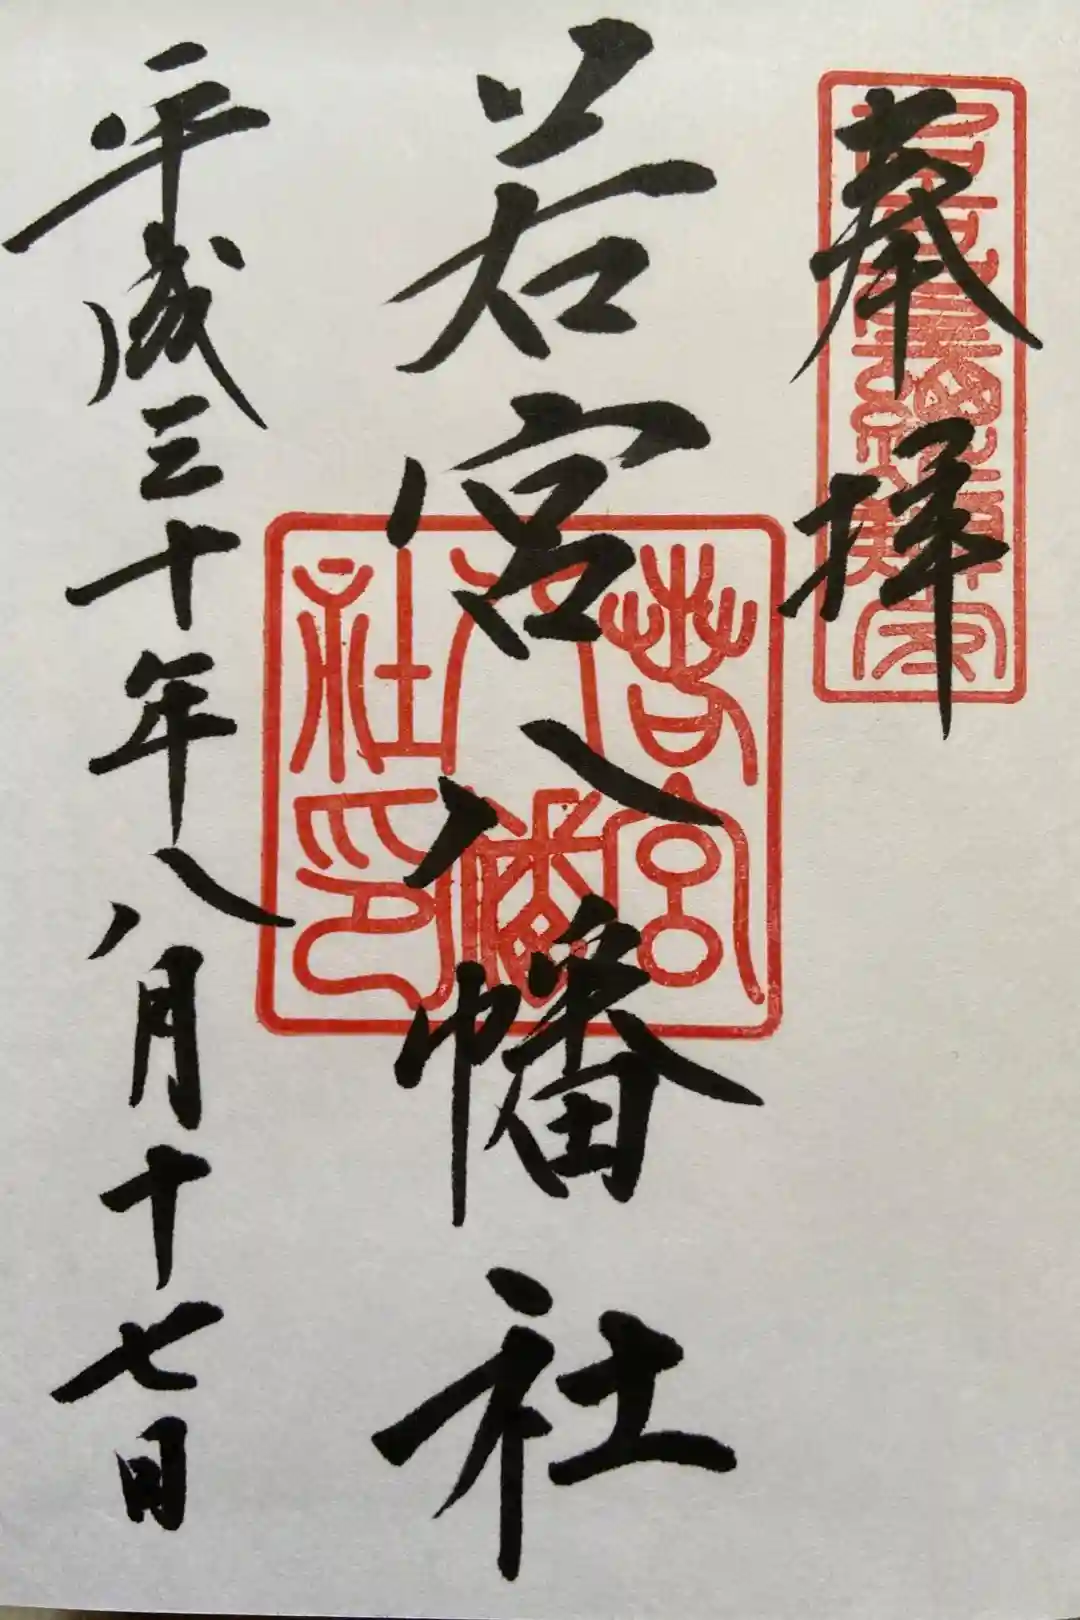 奉拝
若宮八幡社
平成三十年八月十七日
若宮
八幡
社印